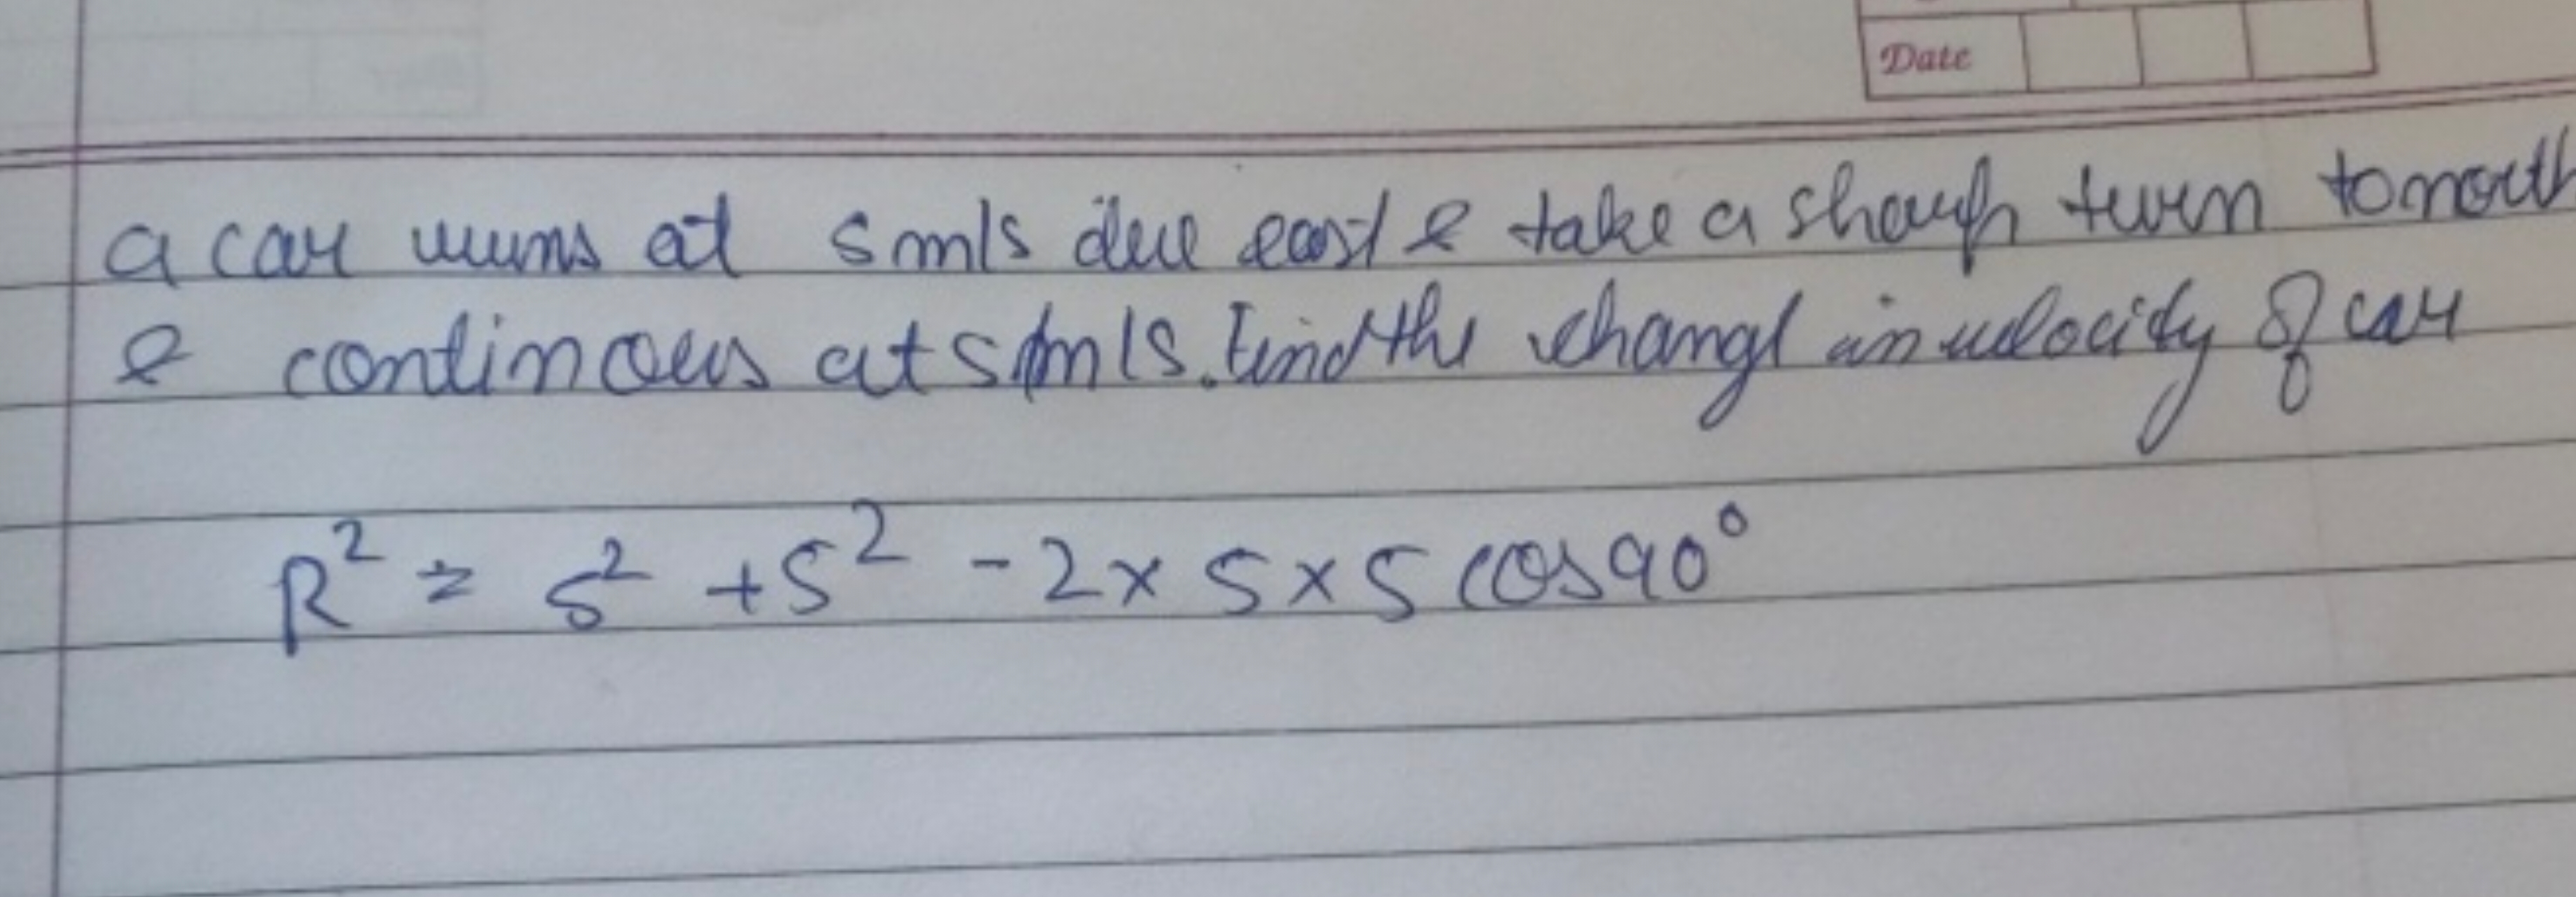 Date
a car runs at 5 m/s due east & take a sharp turn to north
& continous at 5 m/s. Find the change in velocity of car
R² = 5² + 5² - 2 × 5 × 5 cos 90°